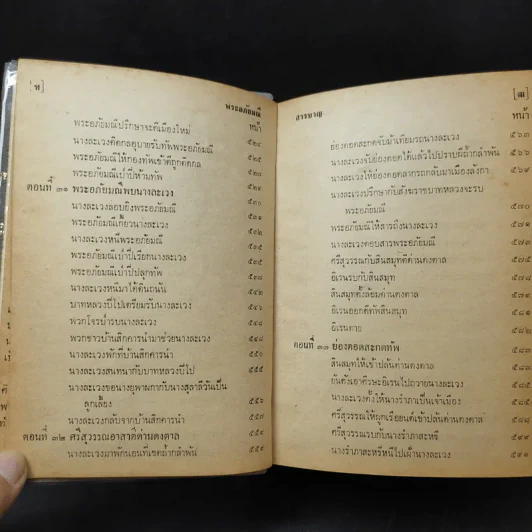 [ท]
พระอภัยมณี
หน้า
พระอภัยมณีปรึกษาจะตีเมืองใหม่ ๕๒๔
นางละเวงคิดกลอุบายรับทัพพระอภัยมณี ๕๒๕
พระอภัยมณีให้กองทัพเข้าตีถูกคิดกล ๕๒๘
พระอภัยมณีเป่าปี่ห้ามทัพ ๕๒๙
ตอนที่ ๓๑ พระอภัยมณีพบนางละเวง ๕๓๐
นางละเวงลอบยิงพระอภัยมณี ๕๓๐
พระอภัยมณีเกี้ยวนางละเวง ๕๓๑
นางละเวงหนีพระอภัยมณี ๕๓๒
พระอภัยมณีเป่าปี่เรียกนางละเวง ๕๓๕
พระอภัยมณีเป่าปี่ปลุกทัพ ๕๓๘
นางละเวงหนีมาได้ดินถนัน ๕๔๒
บาทหลวงปีโปเตรียมรับนางละเวง ๕๔๖
พวกโจรบ่ารบนางละเวง ๕๔๘
พวกชาวบ้านสิกคารนำมาช่วยนางละเวง ๕๔๘
นางละเวงพักที่บ้านสิกคารนำ ๕๔๙
นางละเวงสนทนากับบาทหลวงปีโป ๕๕๔
นางละเวงขอนางยุพาผกากับนางสุลาลีวันเป็น
ลูกเลี้ยง ๕๕๖
นางละเวงกลับจากบ้านสิกคารนำ ๕๕๗
ตอนที่ ๓๒ ศรีสุวรรณอาสาตีด่านดงตาล ๕๕๙
นางละเวงมาพักนอนที่เขตถ้ำกลำพัน ๕๕๙
สารบาญ
หน้า
ย่องตอดสะกดจับม้าเทียมรถนางละเวง ๕๖๓
นางละเวงจับย่องตอดได้แล้วไปปราบผีถ้ำกลำพัน ๕๖๖
นางละเวงให้ย่องตอดลากรถกลับมาเมืองลังกา ๕๖๙
นางละเวงปรึกษากับสังฆราชบาทหลวงจะรบ
พระอภัยมณี ๕๗๐
พระอภัยมณีให้สารถึงนางละเวง ๕๗๑
นางละเวงตอบสารพระอภัยมณี
ศรีสุวรรณกับสินสมุทตีด่านดงตาล
อิเรนรบกับสินสมุท
สินสมุทตั้งล้อมด่านดงตาล
อิเรนออกตีทัพสินสมุท
อิเรนตาย
ตอนที่ ๓๓ ย่องตอดสะกดทัพ
สินสมุทให้เข้าปล้นด่านดงตาล
ยันตังเอาศีรษะอิเรนไปถวายนางละเวง
นางละเวงตั้งให้นางรำภาเป็นเจ้าเมือง
ศรีสุวรรณให้ผูกเรือยนต์เข้าปล้นด่านดงตาล
ศรีสุวรรณรบกับนางรำภาสะหรี
นางรำภาสะหรีหนีไปเฝ้านางละเวง